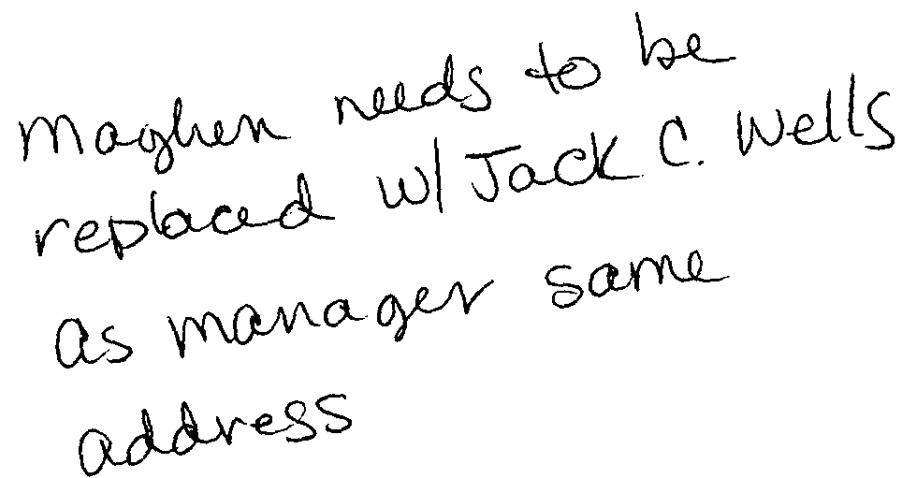 Maghen needs to be
replaced w/ Jack C. Wells
as manager same
address